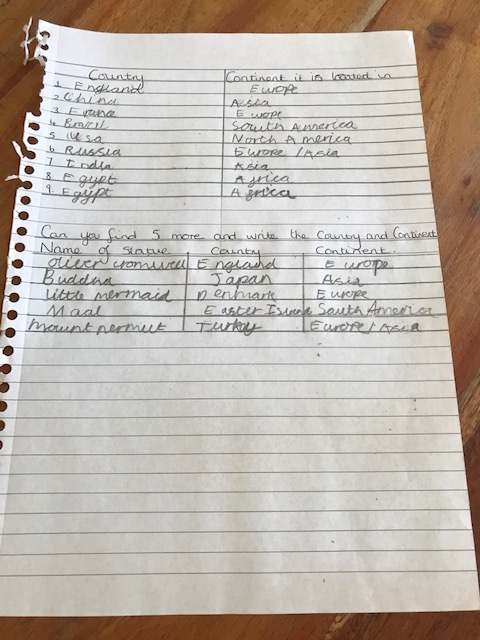 Country Continent it is located in
1 England Europe
2 China Asia
3 France Europe
4 Brazil South America
5 Usa North America
6 Russia Europe / Asia
7 India Asia
8 Egypt Africa
9. Egypt Africa
Can you find 5 more and write the Country and Continent
Name of statue Country Continent.
Oliver cromwell England Europe
Buddha Japan Asia
Little mermaid Denmark Europe
Maai Easter Island South America
Mount nermut Turkey Europe / Asia